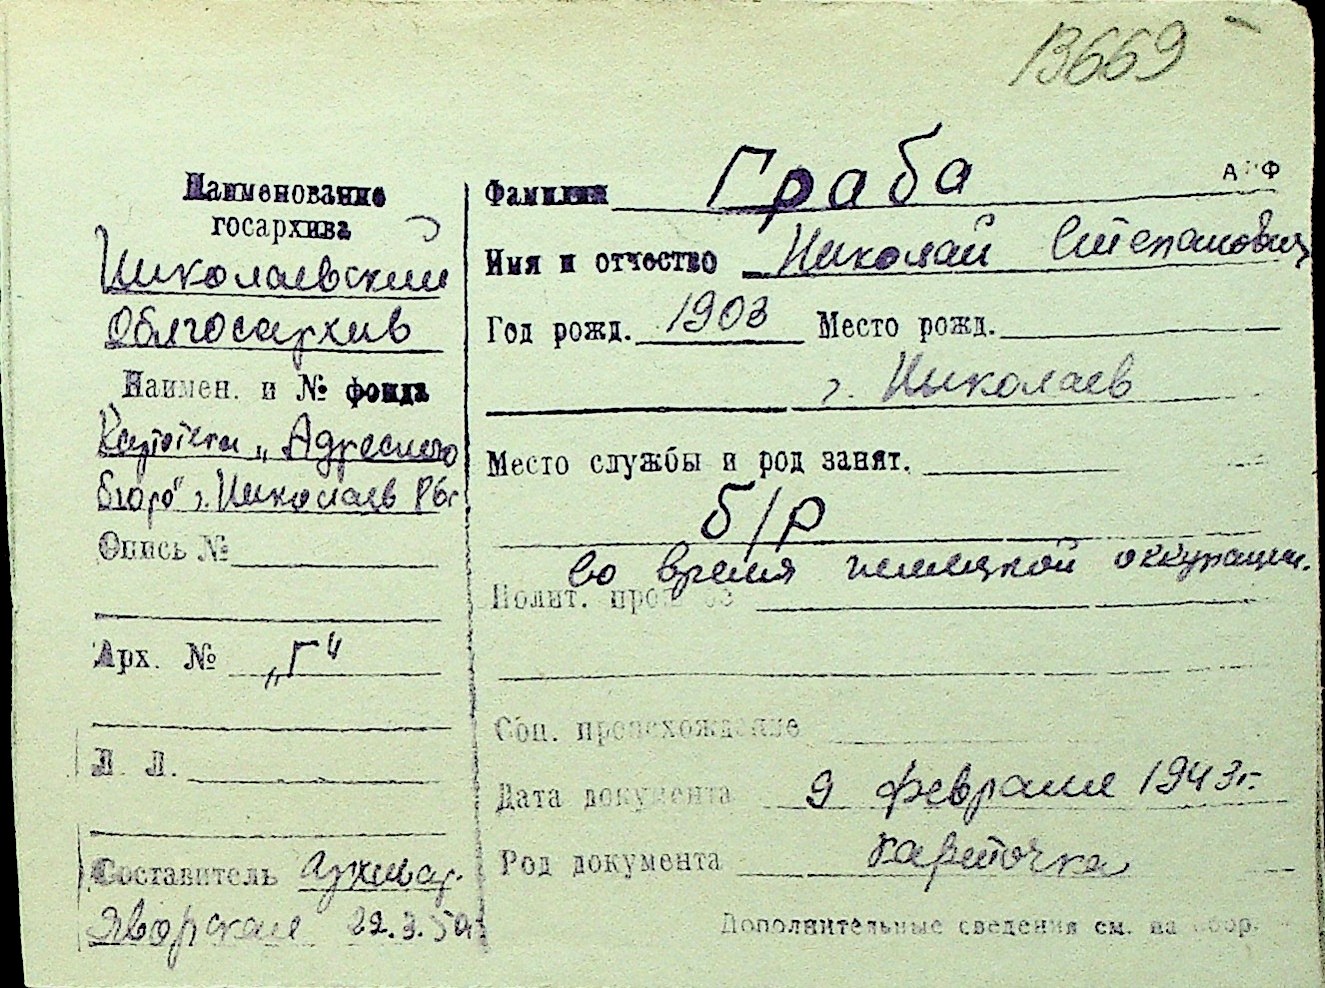 13669
Наименование
госархива
Николаевский
Облгосархив
Наимен. и № фонда
Картотека „Адресного
бюро" г. Николаев
Опись №
Арх. № „Г"
Л. Л.
Составитель архивар.
Яворская 22.3.50г
АРФ
Фамилия Граба
Имя и отчество Николай Степанович
Год рожд. 1903 Место рожд.
г. Николаев
Место службы и род занят.
б/р
во время немецкой оккупации.
Полит. прошлое
Соц. происхождение
Дата документа 9 февраля 1943г.
Род документа карточка
Дополнительные сведения см. на обор.